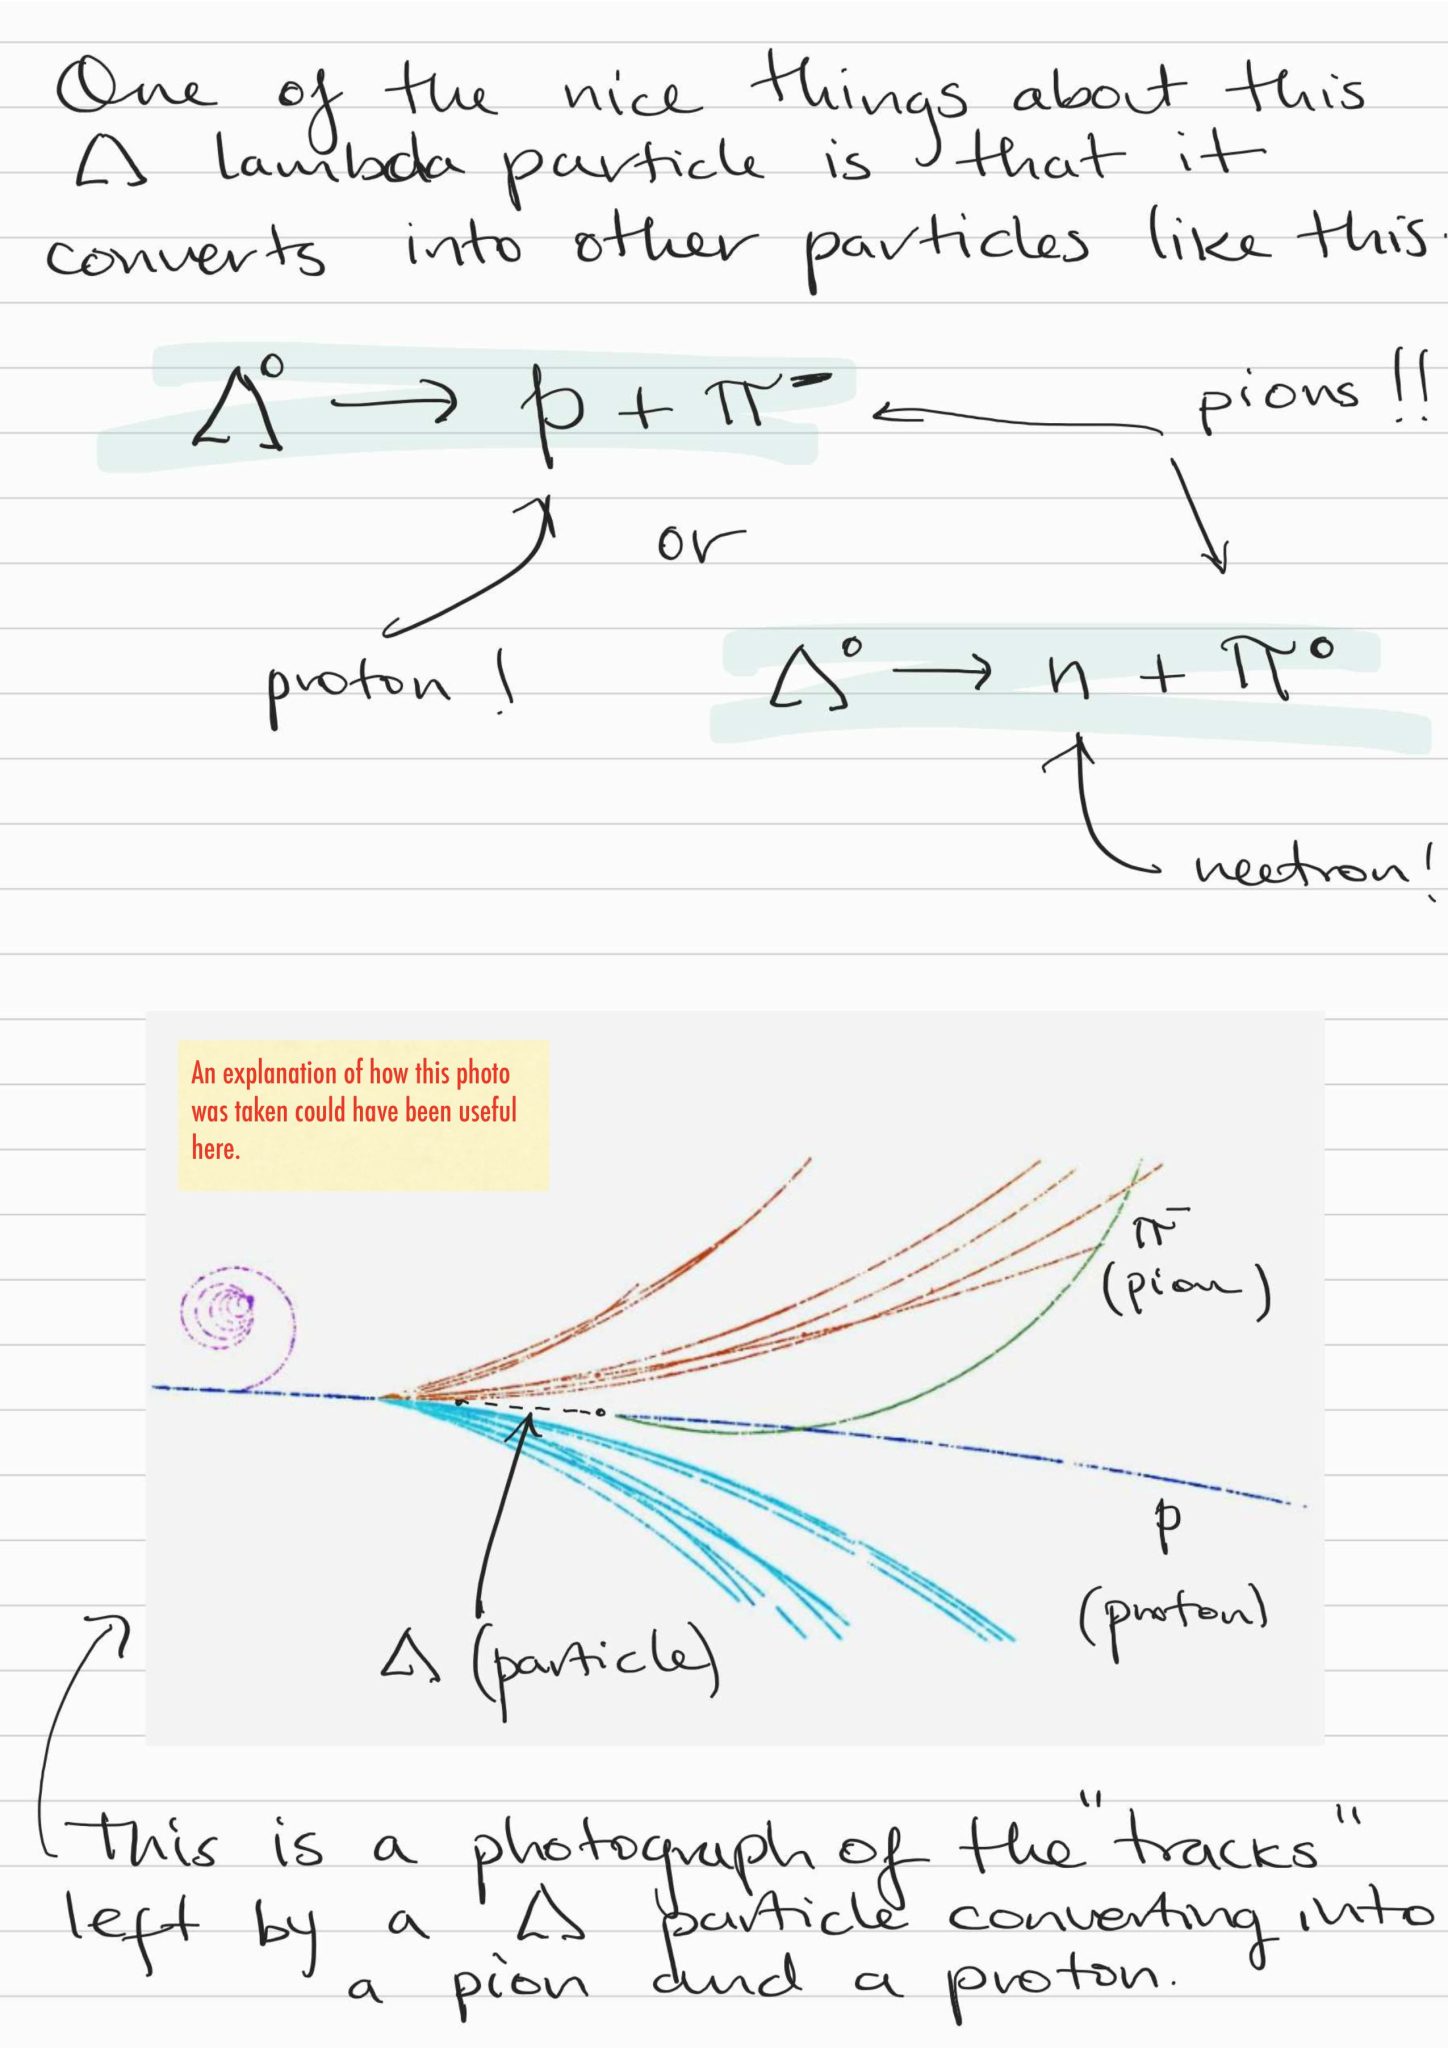 One of the nice things about this
Λ lambda particle is that it
converts into other particles like this.
Λ⁰ → p + π⁻
pions!!
or
proton!
Λ⁰ → n + π⁰
neutron!
An explanation of how this photo
was taken could have been useful
here.
π⁻
(pion)
p
(proton)
Λ (particle)
This is a photograph of the "tracks"
left by a Λ particle converting into
a pion and a proton.